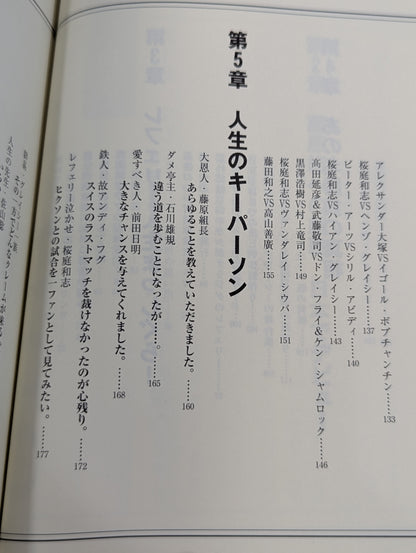 アレクサンダー大塚VSイゴール・ボブチャンチン……133
桜庭和志VSヘンゾ・グレイシー……137
ピーター・アーツVSシリル・アビディ……140
桜庭和志VSハイアン・グレイシー……143
高田延彦&武藤敬司VSドン・フライ&ケン・シャムロック……146
黒澤浩樹VS村上竜司……149
桜庭和志VSヴァンダレイ・シウバ……151
藤田和之VS高山善廣……155
第5章 人生のキーパーソン
大恩人・藤原組長
あらゆることを教えていただきました。……160
ダメ亭主・石川雄規
違う道を歩むことになったが……。……165
愛すべき人・前田日明
大きなチャンスを与えてくれました。……168
鉄人・故アンディ・フグ
スイスのラストマッチを裁けなかったのが心残り。……172
レフェリー泣かせ・桜庭和志
ヒクソンとの試合を一ファンとして見てみたい。……177